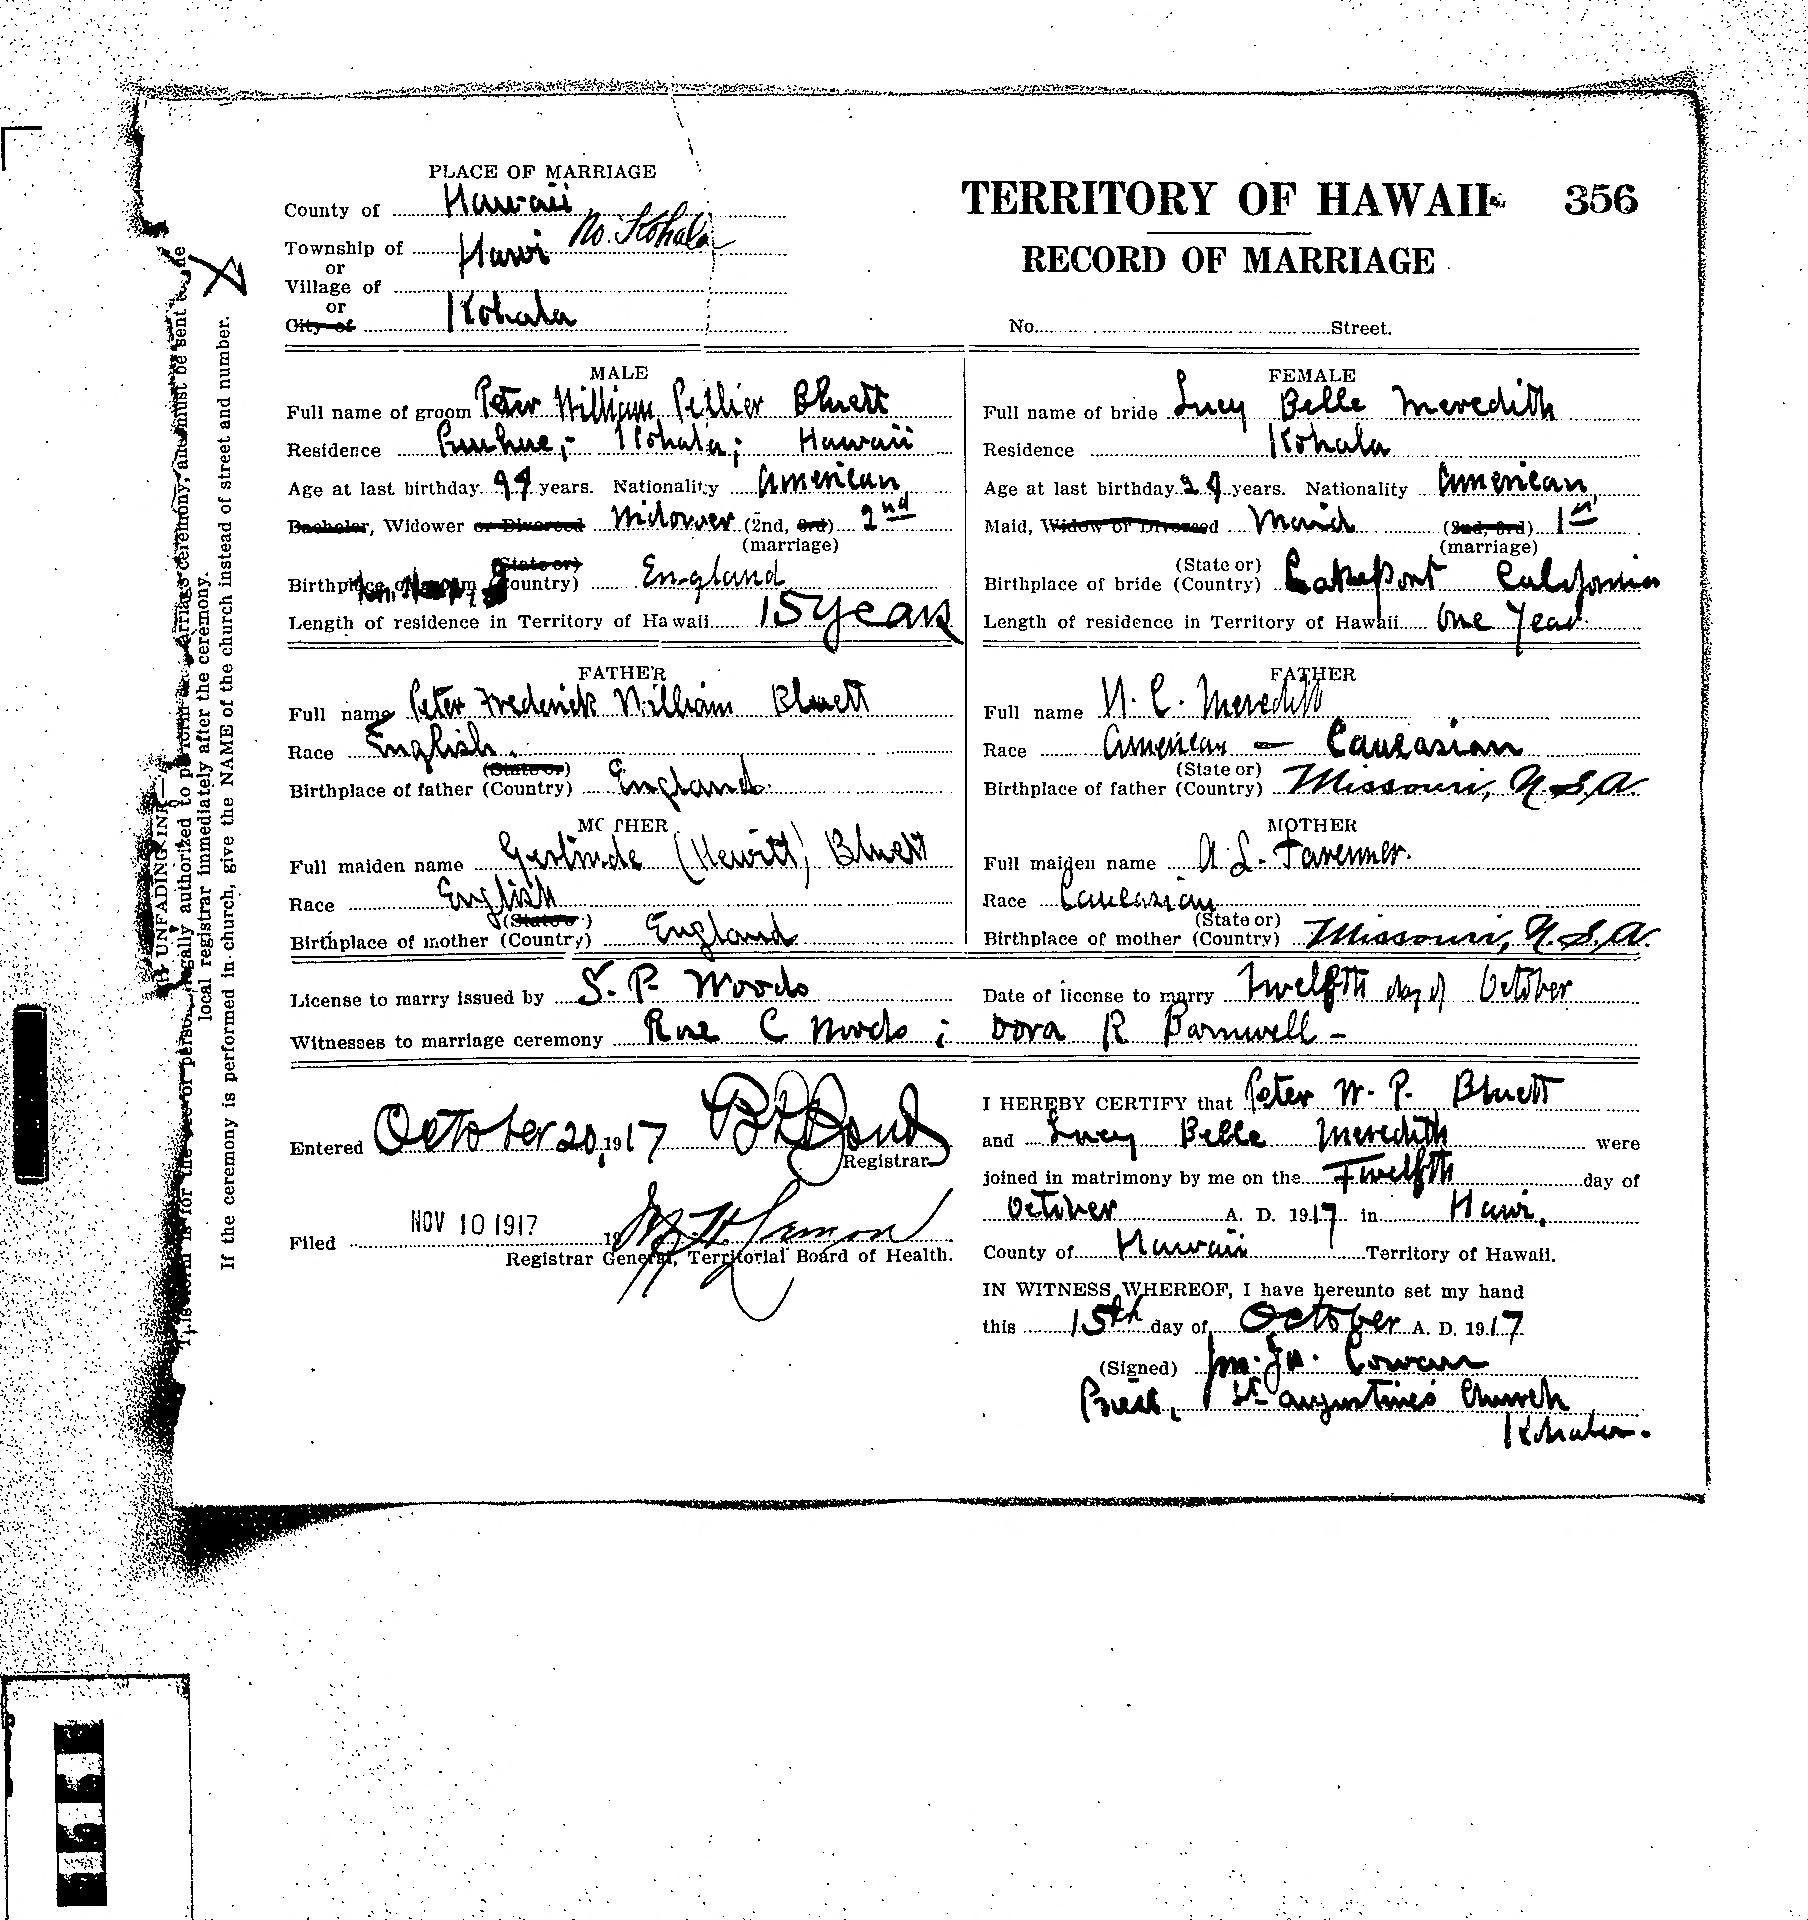 PLACE OF MARRIAGE
County of Hawaii
Township of Hawi No. Kohala
or
Village of
or
City of Kohala
TERRITORY OF HAWAII 356
RECORD OF MARRIAGE
No. Street.
MALE
Full name of groom Peter William Bluett
Residence Puuhue; Kohala; Hawaii
Age at last birthday years. Nationality American
Bachelor, Widower or Divorced Widower (2nd, 3rd) 2nd
(marriage)
(State or)
Birthplace of (Country) England
Length of residence in Territory of Hawaii 15 years
FEMALE
Full name of bride Lucy Belle Meredith
Residence Kohala
Age at last birthday years. Nationality American
Maid, Widow or Divorced Maid (2nd, 3rd) 1st
(marriage)
(State or)
Birthplace of bride (Country) Lakeport California
Length of residence in Territory of Hawaii One Year
FATHER
Full name Peter Frederick William Bluett
Race English.
(State or)
Birthplace of father (Country) England
MOTHER
Full maiden name Gertrude (Hewitt) Bluett
Race English
(State or)
Birthplace of mother (Country) England
FATHER
Full name C. Meredith
Race American — Caucasian
(State or)
Birthplace of father (Country) Missouri, U.S.A.
MOTHER
Full maiden name A. L. Tavenner.
Race Caucasian
(State or)
Birthplace of mother (Country) Missouri, U.S.A.
License to marry issued by S. P. Woods
Date of license to marry Twelfth day of October
Witnesses to marriage ceremony Rose C Woods ; Dora R Barnwell -
Entered October 20, 1917
Registrar
Filed NOV 10 1917 19
Registrar General, Territorial Board of Health.
I HEREBY CERTIFY that Peter W. P. Bluett
and Lucy Belle Meredith were
joined in matrimony by me on the Twelfth day of
October A. D. 1917 in Hawi,
County of Hawaii Territory of Hawaii.
IN WITNESS WHEREOF, I have hereunto set my hand
this 15th day of October A. D. 1917
(Signed) Cowan
Priest, St Augustine's Church
Kohala.
UNFADING INK—
legally authorized to perform marriage ceremony, and must be sent to the
local registrar immediately after the ceremony.
If the ceremony is performed in church, give the NAME of the church instead of street and number.